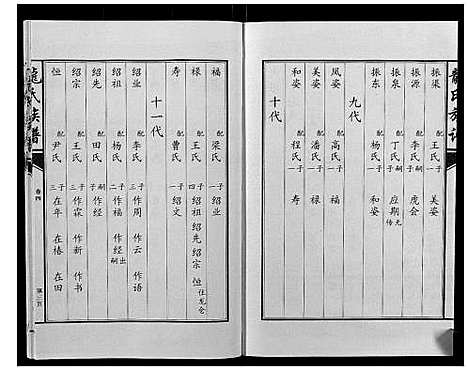 龍氏族譜
振渠 配王氏 一子 美姿
振源 配李氏 一子 虎会
振泉 配丁氏 嗣子 应期 失传
振东 配杨氏 一子 和姿
九代
凤姿 配高氏 一子 福
美姿 配潘氏 一子 禄
和姿 配程氏 一子 寿
十代
福 配梁氏 一子 绍业
禄 配王氏 四子 绍祖 绍先 绍宗 恒 住龙仓
寿 配曹氏 一子 绍文
十一代
绍业 配李氏 三子 作周 作云 作语
绍祖 配杨氏 二子 作福 作经 出嗣
绍先 配田氏 嗣子 作经
绍宗 配王氏 三子 作霖 作新 作书
恒 配尹氏 三子 在年 在椿 在田
龍氏族譜
卷四
第三页